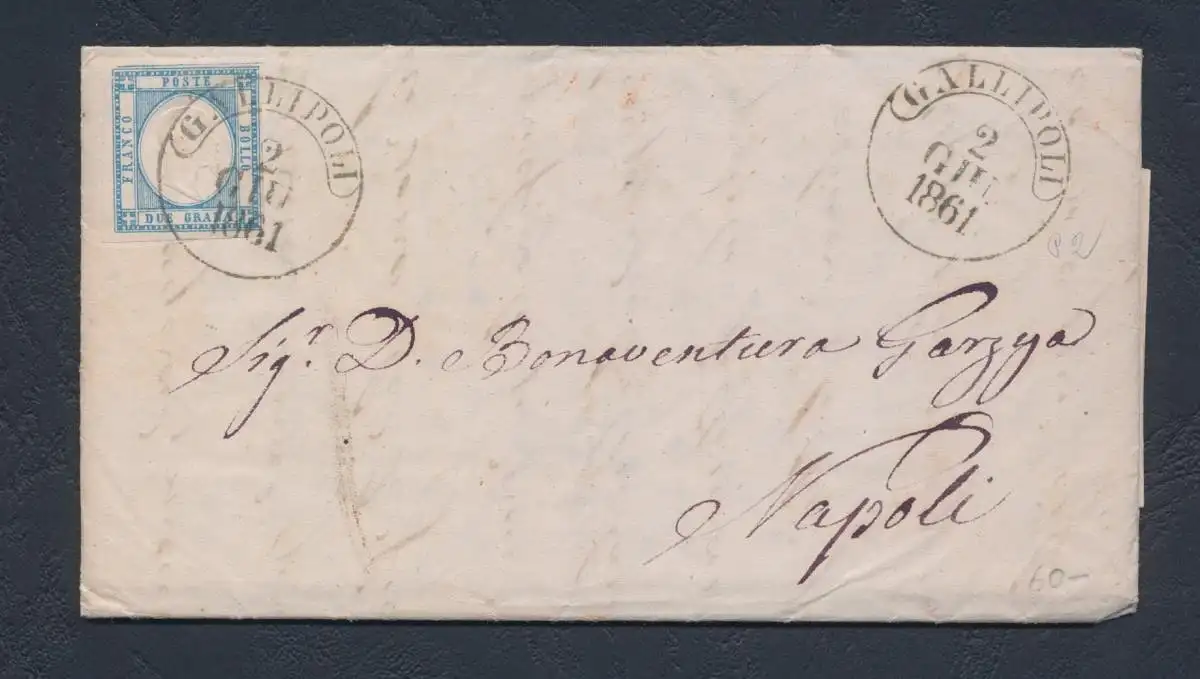 POSTE
FRANCO
BOLLO
DUE GRANA
GALLIPOLI
2
GIU
1861
GALLIPOLI
2
GIU
1861
Sigr. D. Bonaventura Garzya
Napoli
60-